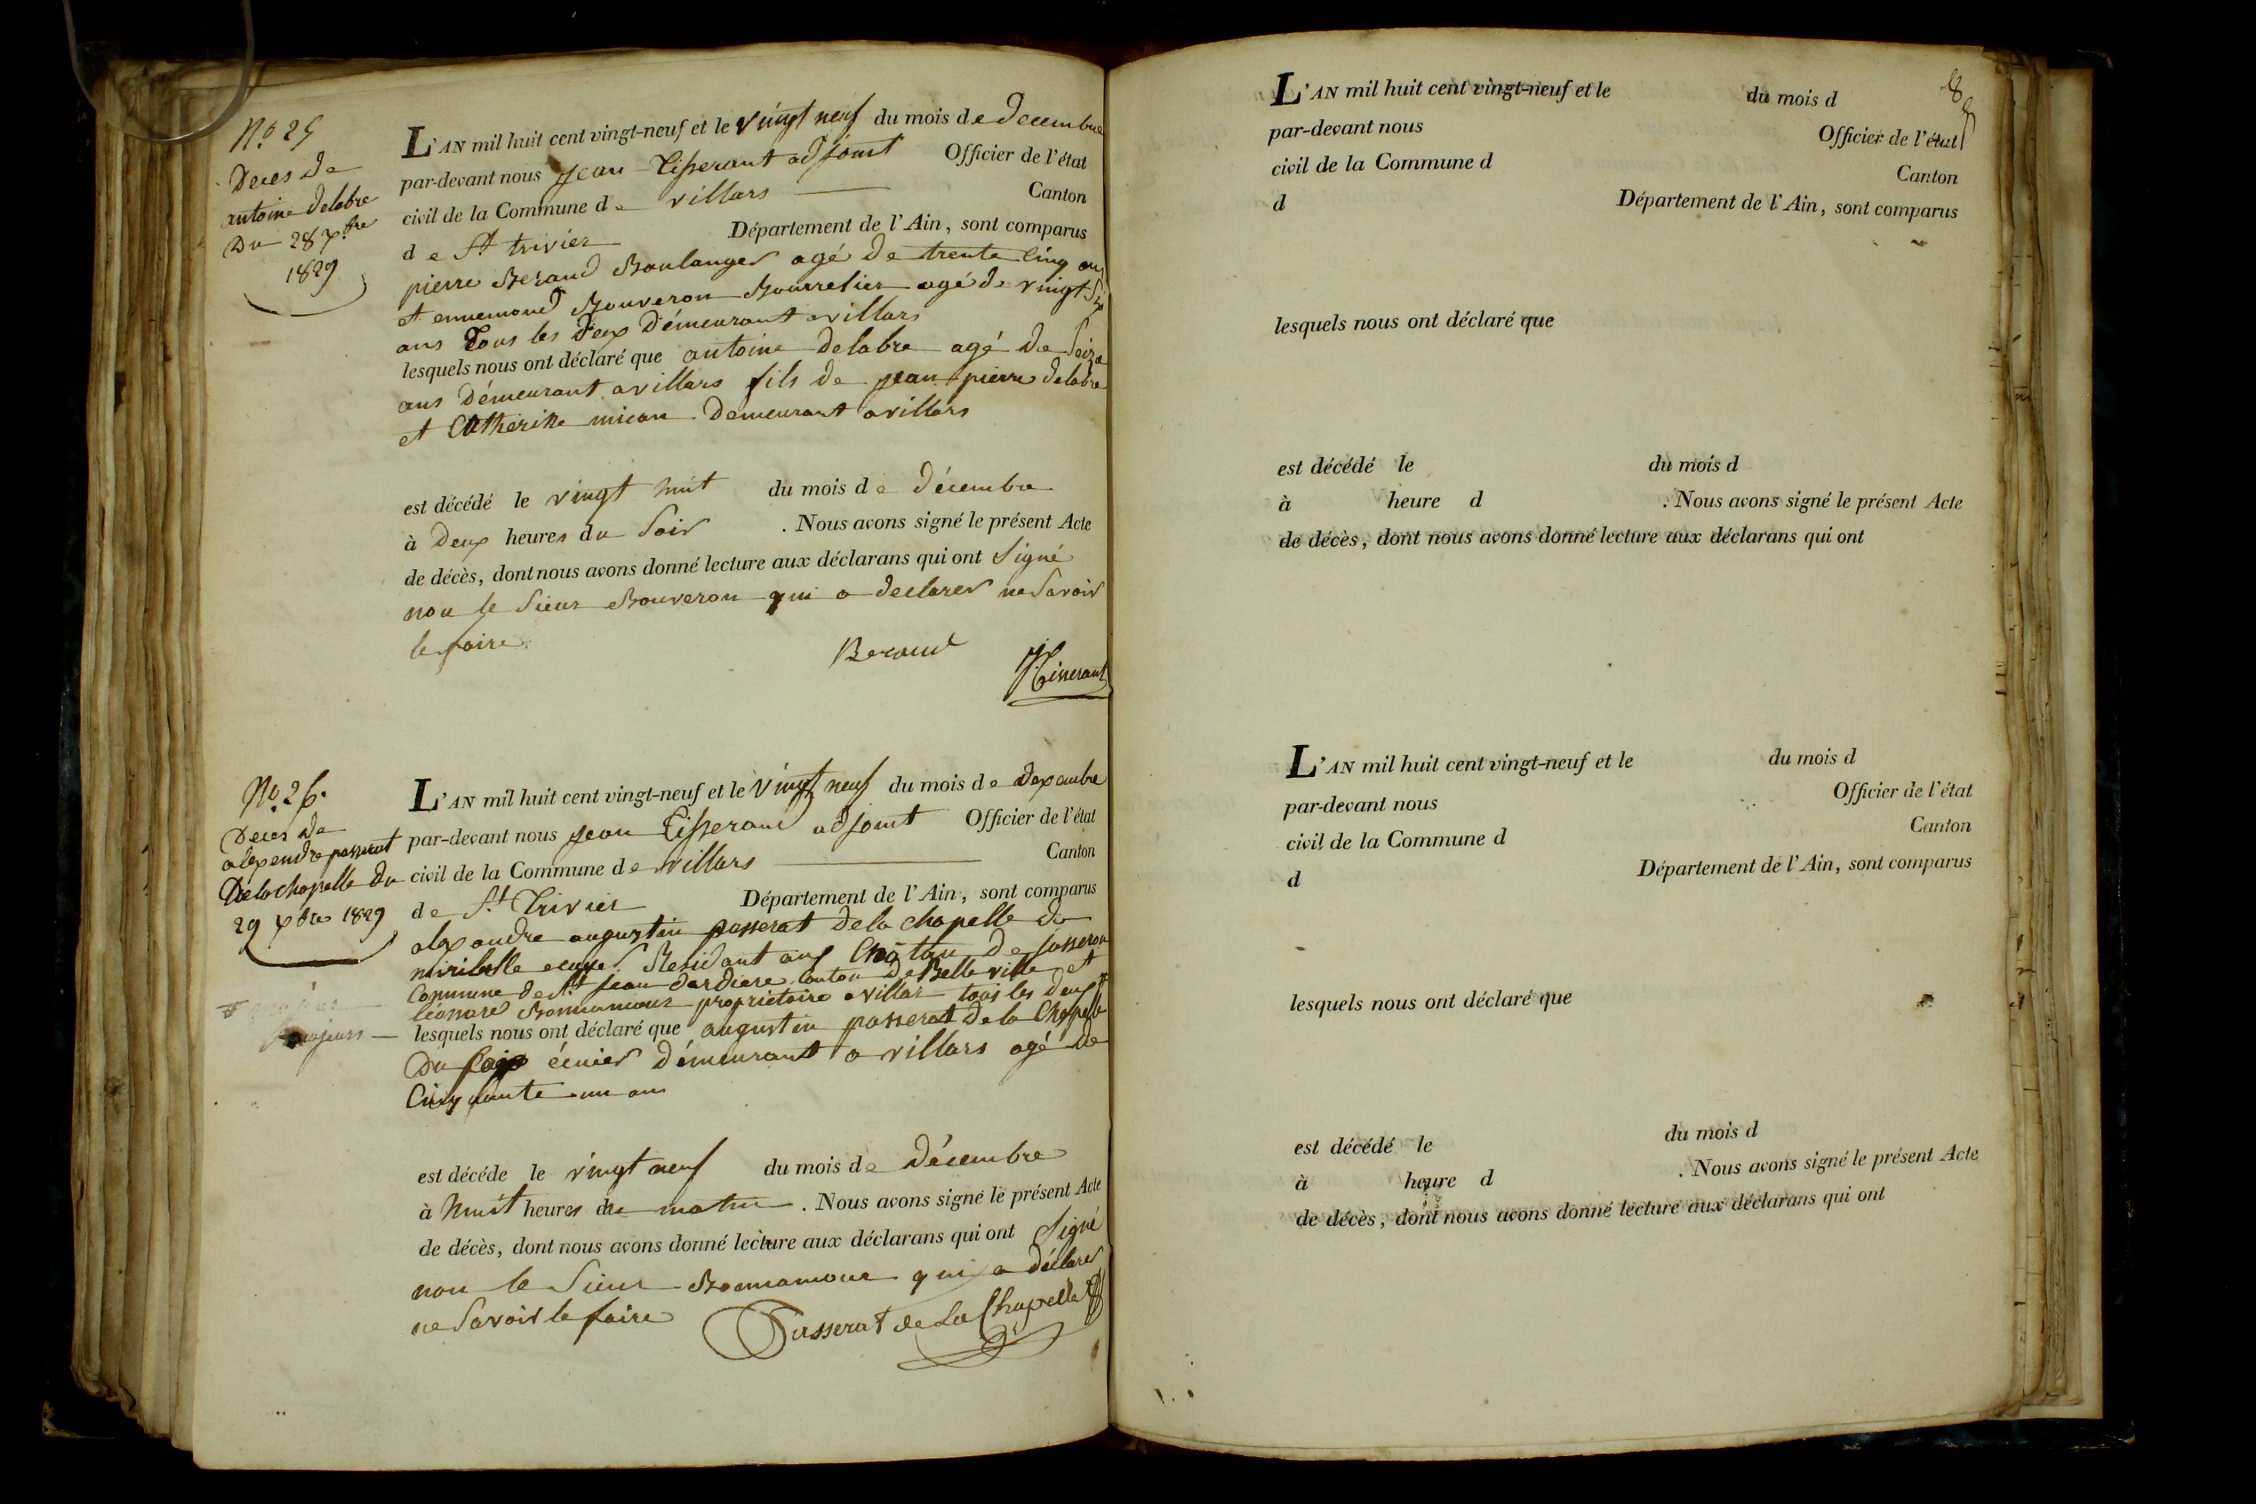 N.o 25
Deces de
antoine delabre
Du 28 xbre
1829
L'AN mil huit cent vingt-neuf et le vingt neuf du mois de decembre
par-devant nous jean Tisserant adjoint Officier de l'état
civil de la Commune de villars Canton
de St trivier Département de l'Ain, sont comparus
pierre Beraud Boulanger agé de trente Cinq ans
et ennemond Bouveron Bourrelier agé de vingt Six
ans Tous les deux démeurant a villars
lesquels nous ont déclaré que antoine delabre agé de Seize
ans démeurant a villars fils de jean pierre delabre
et Catherine mican demeurant a villars
est décédé le vingt huit du mois de décembre
à Deux heures du Soir . Nous avons signé le présent Acte
de décès, dont nous avons donné lecture aux déclarans qui ont Signé
non le Sieur Bouveron qui a declarer ne Savoir
le faire
Beraud
Tisserant
N.o 26.
Deces de
alexendre passerat
De la chapelle du
29 xbre 1829
L'AN mil huit cent vingt-neuf et le vingt neuf du mois de dexambre
par-devant nous jean Tisserand adjoint Officier de l'état
civil de la Commune de villars Canton
de St Trivier Département de l'Ain, sont comparus
alexandre augustin passerat de la chapelle de
Residant aux Chatau de
Commune de St jean dardiere canton de Belleville et
léonard Bonnamour propriétaire a villar tous les deux
majeurs
lesquels nous ont déclaré que augustin passerat de la Chapelle
Du écuier démeurant a villars agé de
Cinquante un an
est décéde le vingt neuf du mois de Décembre
à huit heures du matin . Nous avons signé le présent Acte
de décès, dont nous avons donné lecture aux déclarans qui ont Signé
non le Sieur Bonnamour qui a déclarer
ne Savoir le faire
Passerat de La Chapelle
L'AN mil huit cent vingt-neuf et le du mois d
par-devant nous Officier de l'état
civil de la Commune d Canton
d Département de l'Ain, sont comparus
lesquels nous ont déclaré que
est décédé le du mois d
à heure d . Nous avons signé le présent Acte
de décès, dont nous avons donné lecture aux déclarans qui ont
L'AN mil huit cent vingt-neuf et le du mois d
par-devant nous Officier de l'état
civil de la Commune d Canton
d Département de l'Ain, sont comparus
lesquels nous ont déclaré que
est décédé le du mois d
à heure d . Nous avons signé le présent Acte
de décès, dont nous avons donné lecture aux déclarans qui ont